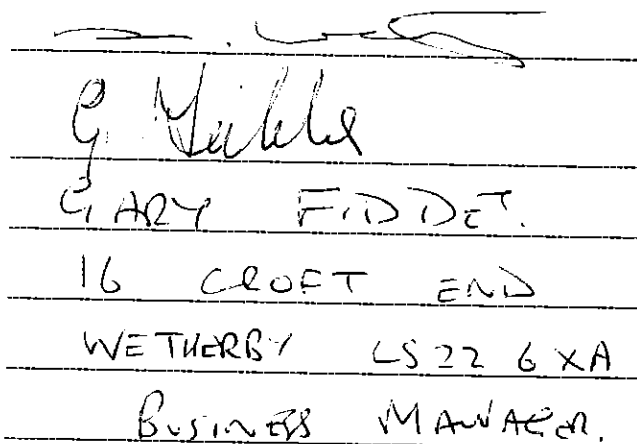 GARY FIDDET.
16 CROFT END
WETHERBY LS22 6XA
BUSINESS MANAGER.